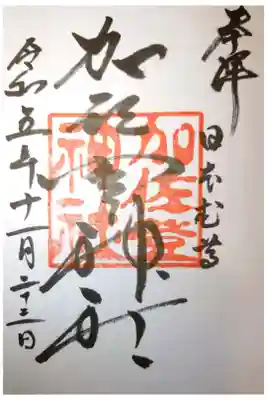 奉拝
日本武尊
加佐登神社
加佐登神社
令和五年十一月二十三日